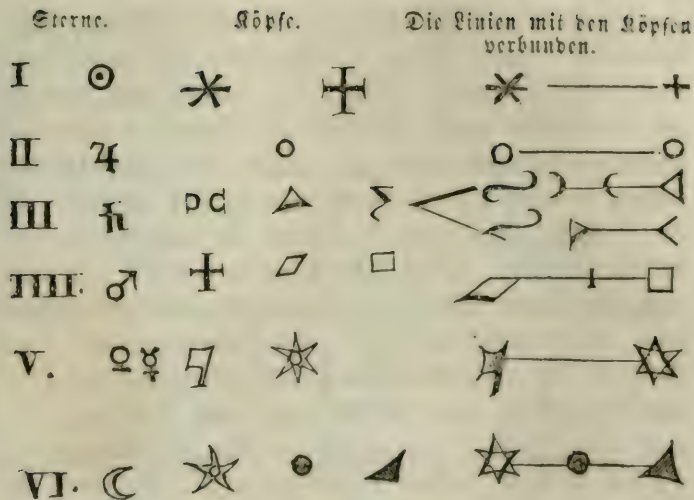 Sterne. Köpfe. Die Linien mit den Köpfen
verbunden.
I ☉
II ♃
III ♄
IIII. ♂
V. ♀☿
VI. ☾